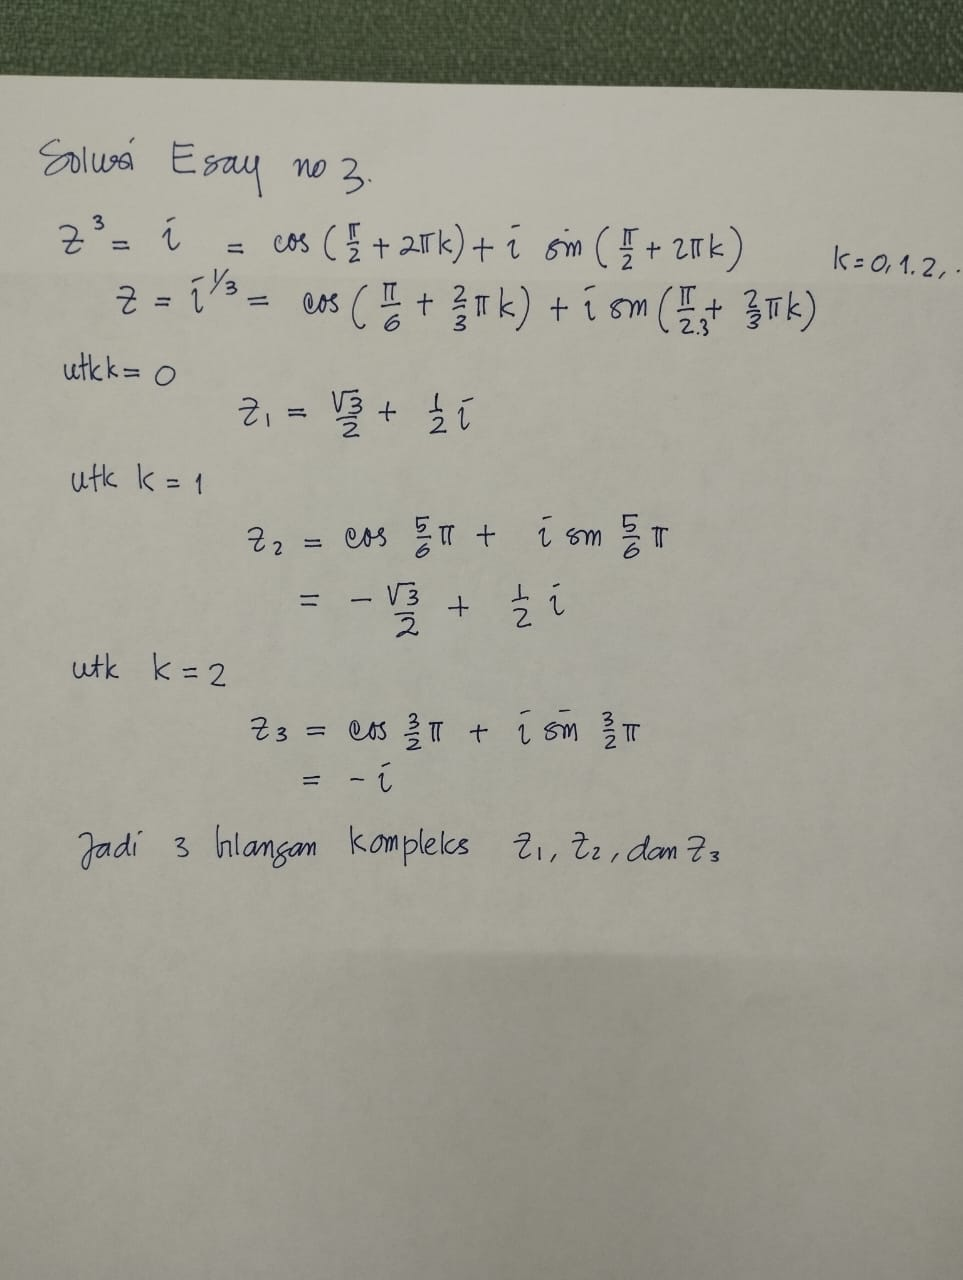 Solusi Esay no 3.
z³ = i = cos (π/2 + 2πk) + i sin (π/2 + 2πk) k = 0, 1. 2, .
z = i^1/3 = cos (π/6 + 2/3 πk) + i sin (π/2.3 + 2/3 πk)
utk k = 0
z₁ = √3/2 + 1/2 i
utk k = 1
z₂ = cos 5/6 π + i sin 5/6 π
= - √3/2 + 1/2 i
utk k = 2
z₃ = cos 3/2 π + i sin 3/2 π
= - i
Jadi 3 bilangan kompleks z₁, z₂, dan z₃